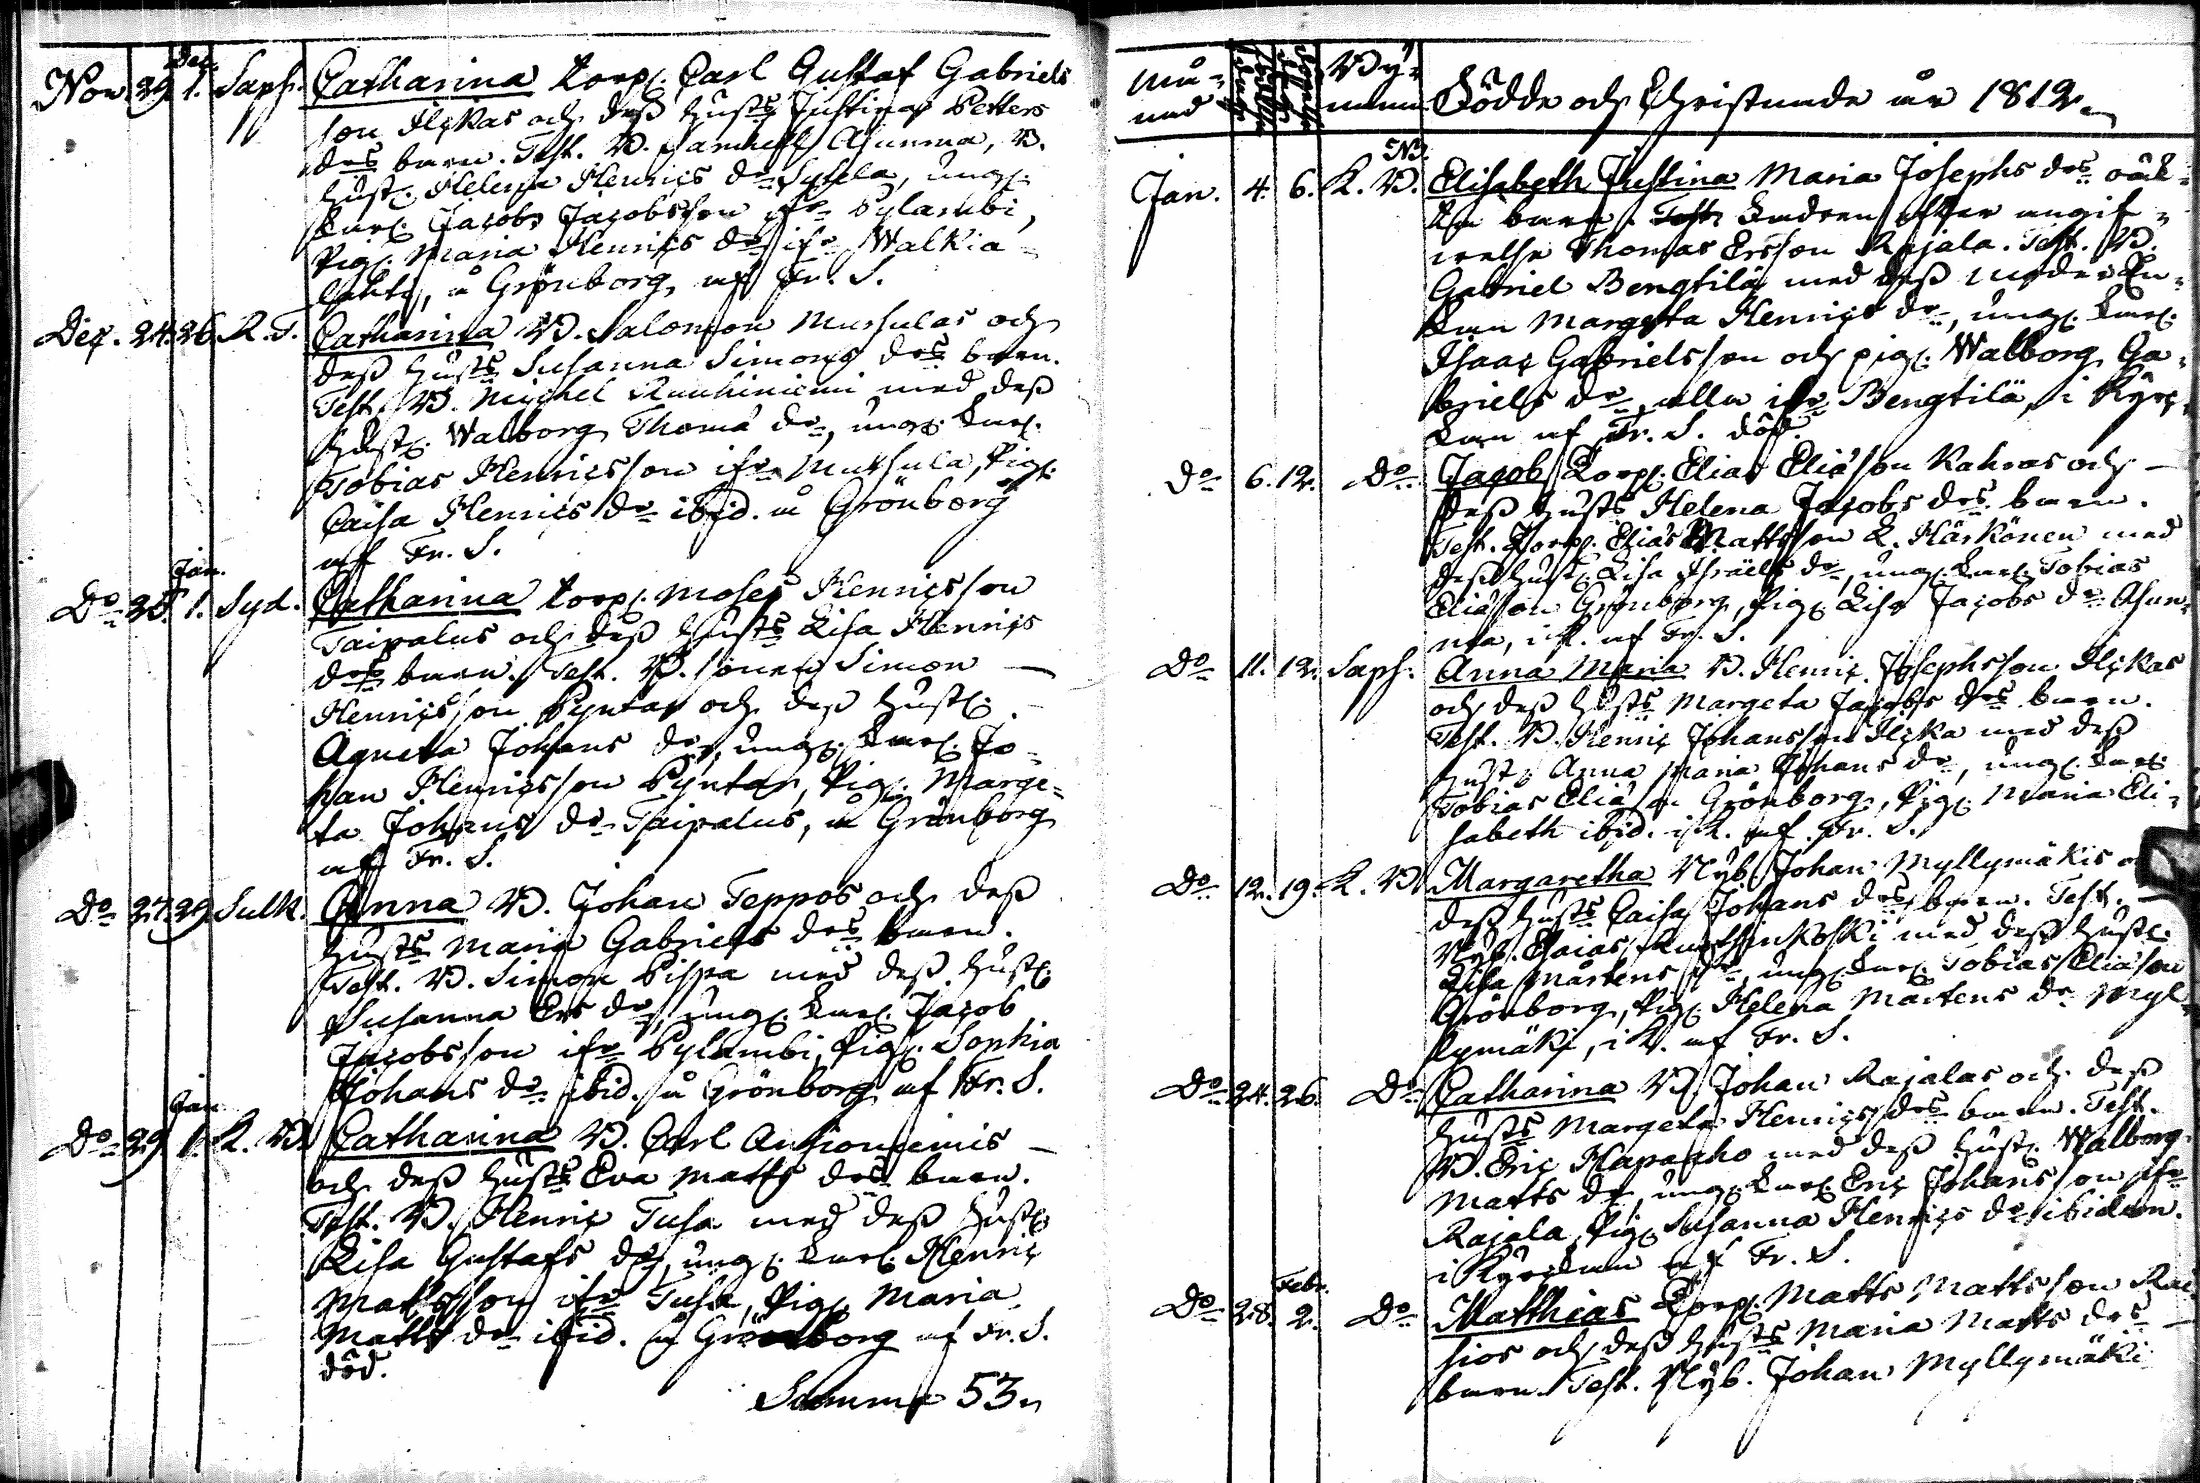 Dec.
Nov. 29. 1. Saph. Catharina Torp. Carl Gustaf Gabriels
son Ilckas och dess hust:s Justina Petters
dr:s barn. Test. B. Samuel Asunma, B.
hust. Helena Henrics dr Sysela, ung.
karl. Jacob Jacobsson ifr. Pylambi,
Pig. Maria Henrics dr ifr. Walkia-
lahti, å Grönborg, af Fr. S.
Dec. 24. 26. R. T. Catharina B. Salomon Mursulas och
dess hust:s Susanna Simons dr:s barn.
Test. B. Michel Rauhiniemi med dess
hust. Walborg Thomæ dr, ung. karl.
Tobias Henricsson ifr. Mursula, Pig.
Caisa Henrics dr ibid. å Grönborg
af Fr. S.
Jan.
Do 25. 1. Syd. Catharina Torp. Moses Henricsson
Taipalus och dess hust:s Lisa Henrics
dr:s barn. Test. B. sonen Simon —
Henricsson Pyntar och dess hust.
Agneta Johans dr, ung. karl. Jo-
han Henricsson Pyntar, Pig. Marge-
ta Johans dr Taipalus, å Grönborg
af Fr. S.
Do 27. 29. Sulk. Anna B. Johan Teppos och dess
hust:s Maria Gabriels dr:s barn.
Test. B. Simon Pispa med dess hust.
Susanna Ers dr, ung. karl. Jacob
Jacobsson ifr. Pylambi, Pig. Sophia
Johans dr ibid. å Grönborg af Fr. S.
Jan.
Do 29. 1. K. B. Catharina B. Carl Antioniemis —
och dess hust:s Eva Matts dr:s barn.
Test. B. Henric Tusa med dess hust.
Lisa Gustafs dr, ung. karl. Henric
Mattsson ifr. Tusa, Pig. Maria
Matts dr ibid. å Grönborg af Fr. S.
död.
Summa 53.
Må-
nad
By-
arna Födde och Christnade år 1812.
NB.
Jan. 4. 6. K. B. Elisabeth Justina Maria Josephs dr:s oäk-
ta barn. Fadren efter angif-
velse Thomas Ersson Rajala. Test. B.
Gabriel Bengtilä med dess moder En-
kan Margeta Henrics dr, ung. karl.
Isaac Gabrielsson och pig. Walborg Ga-
briels dr, alla ifr. Bengtilä, i Kyrc-
kan af Fr. S. död.
Do 6. 12. Do Jacob Torp. Elias Eliæson Kahras och —
dess hust:s Helena Jacobs dr:s barn.
Test. Torp. Elias Mattsson L. Härkönen med
dess hust. Lisa Israels dr, ung. karl. Tobias
Eliæson Grönborg, Pig. Lisa Jacobs dr Asun-
ma, i K. af Fr. S.
Do 11. 12. Saph. Anna Maria B. Henric Josephsson Ilckas
och dess hust:s Margeta Jacobs dr:s barn.
Test. B. Henric Johansson Ilcka med dess
hust. Anna Maria Johans dr, ung. karl.
Tobias Eliæson Grönborg, Pig. Maria Eli-
sabeth ibid. i K. af Fr. S.
Do 12. 19. K. B. Margaretha Nyb. Johan Myllymäkis
dess hust:s Caisa Johans dr:s barn. Test. —
Nyb. Esaias med dess hust.
Lisa Mårtens dr, ung. karl. Tobias Eliæson
Grönborg, Pig. Helena Mårtens dr Myl-
lymäki, i K. af Fr. S.
Do 24. 26. Do Catharina B. Johan Rajalas och dess
hust:s Margeta Henrics dr:s barn. Test.
B. Eric Hapaaho med dess hust. Walborg
Matts dr, ung. karl. Eric Johansson ifr.
Rajala, Pig. Susanna Henrics dr ibidem.
i Kyrckan af Fr. S.
Febr.
Do 28. 2. Do Matthias Torp. Matts Mattsson
och dess hust:s Maria Matts dr:s —
barn. Test. Nyb. Johan Myllymäki